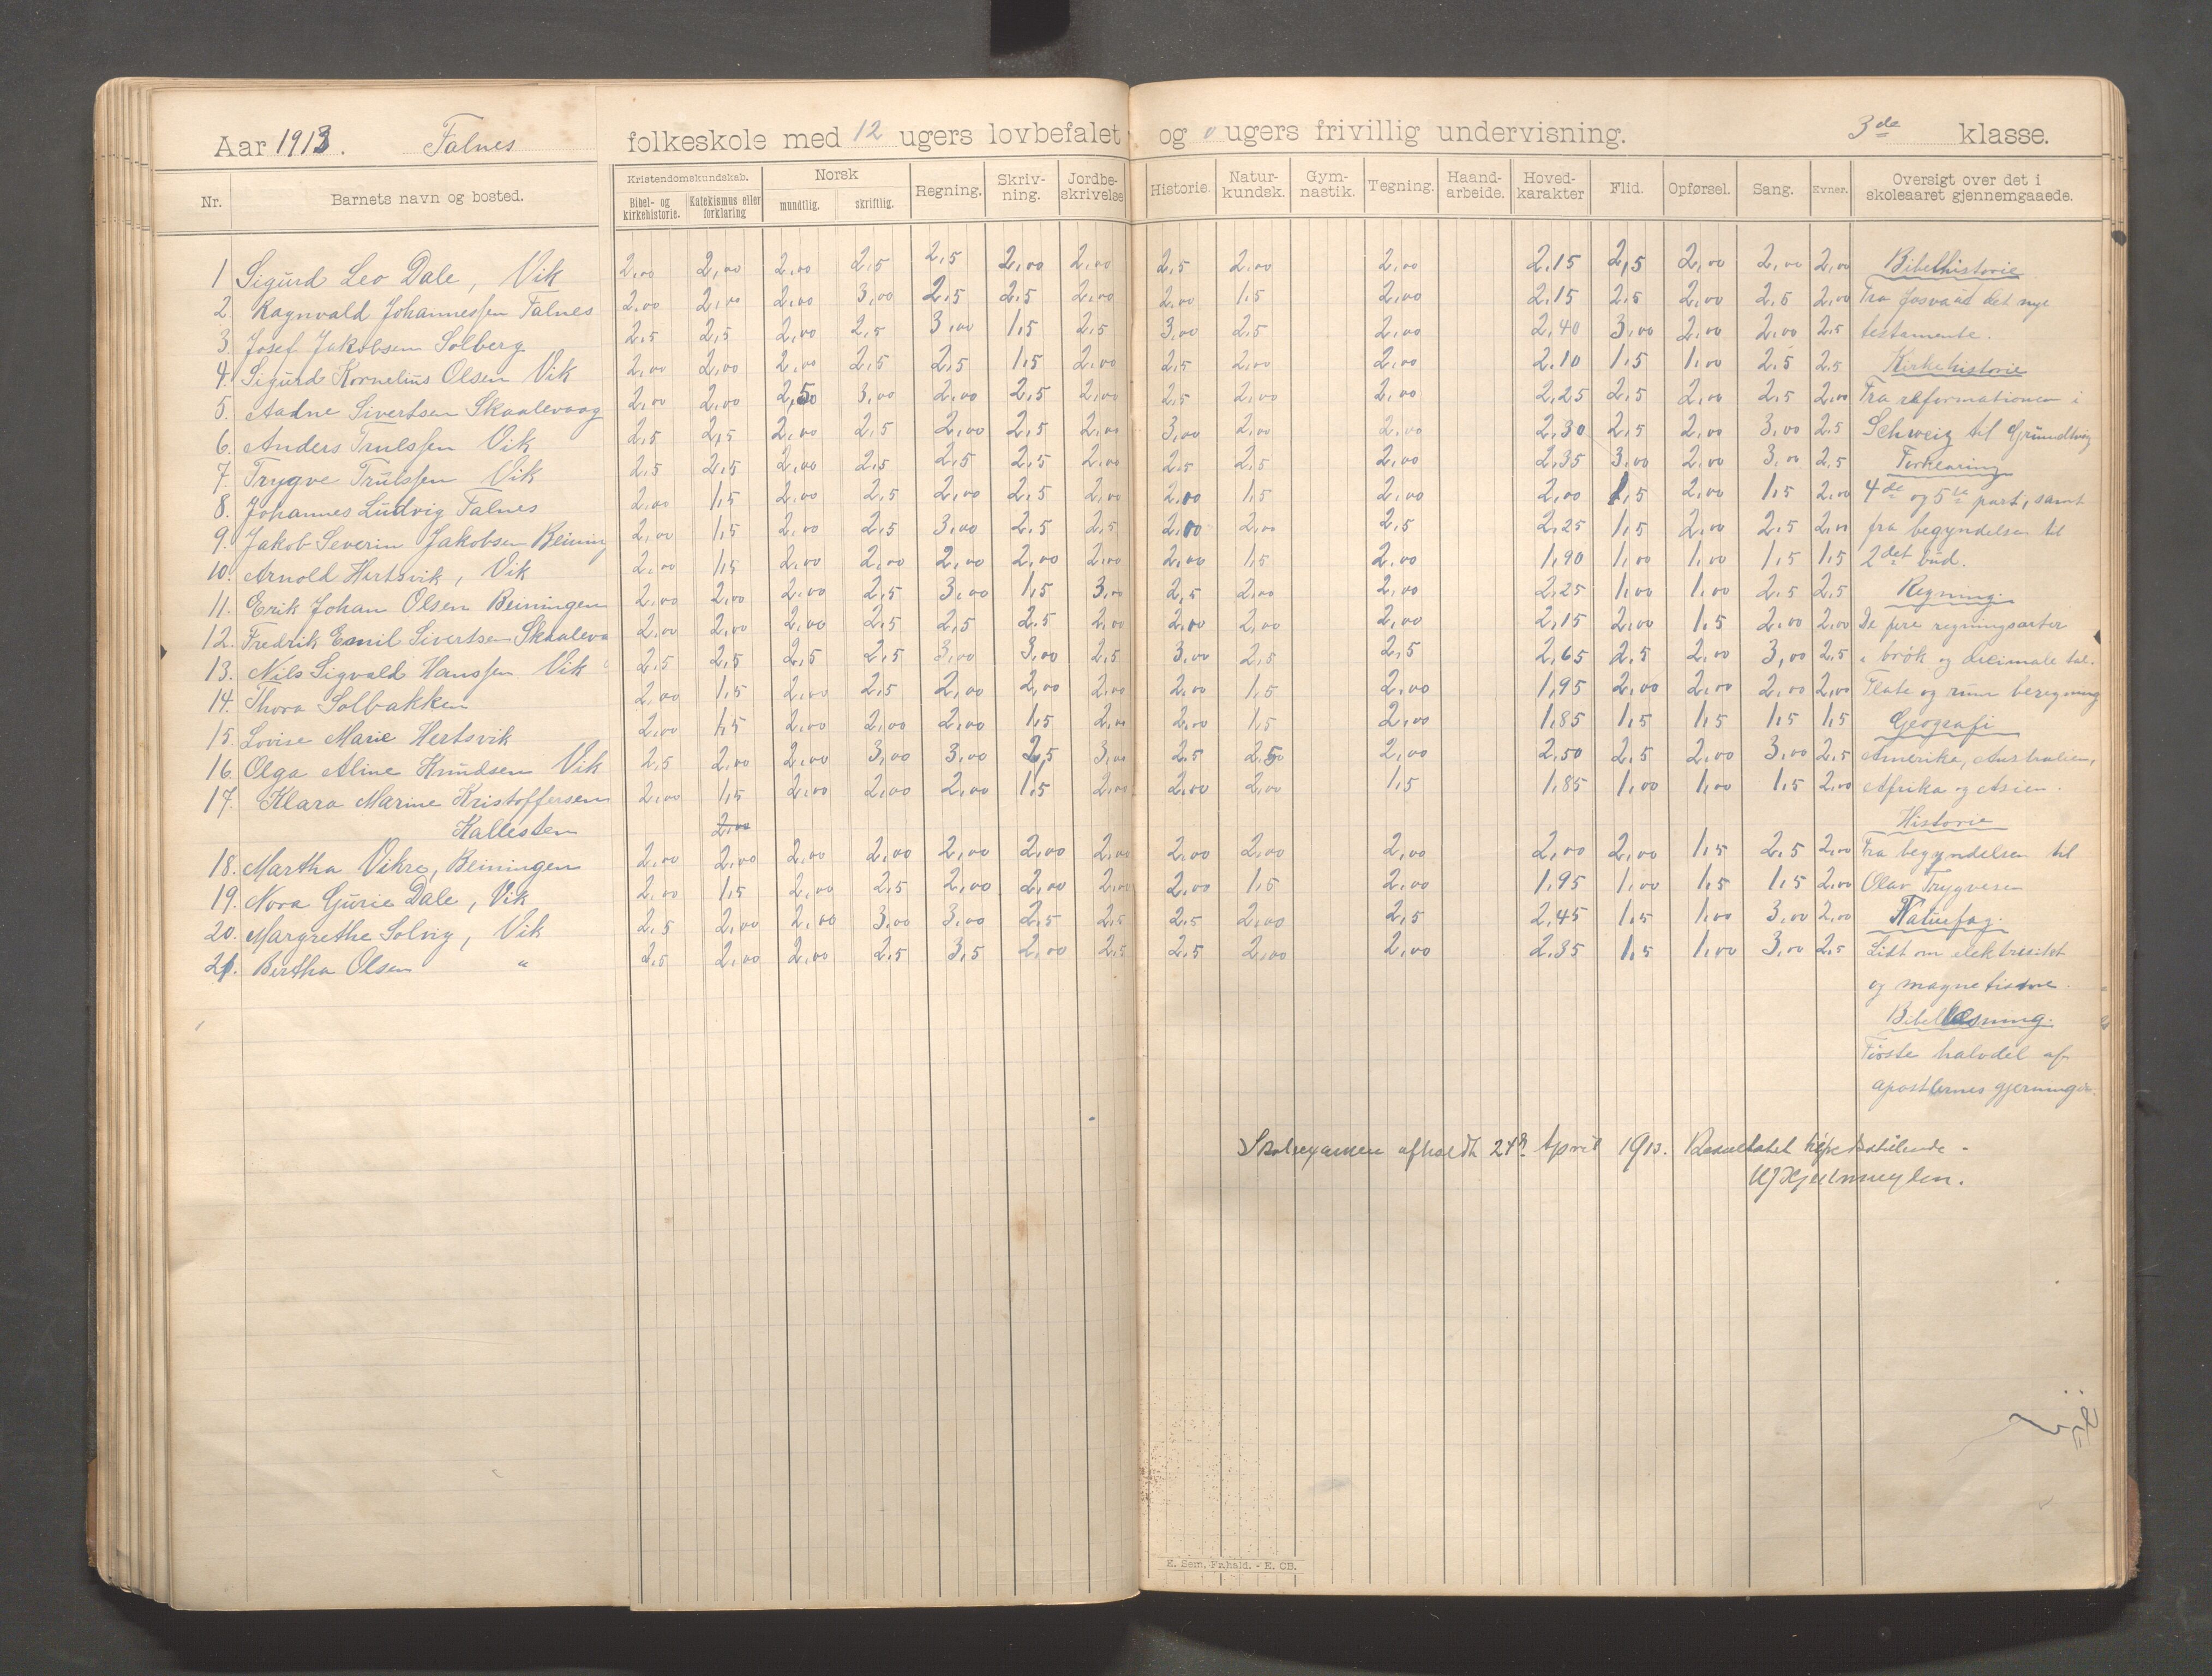 Aar 1913. Falnes folkeskole med 12 ugers lovbefalet og 0 ugers frivillig undervisning. 3de klasse.
Nr. Barnets navn og bosted. Kristendomskundskab. Bibel- og kirkehistorie. Katekismus eller forklaring Norsk mundtlig. skriftlig. Regning. Skriv-ning. Jordbe-skrivelse Historie. Natur-kundsk. Gym-nastik. Tegning. Haand-arbeide. Hoved-karakter Flid. Opførsel. Sang. Evner. Oversigt over det i skoleaaret gjennemgaaede.
1 Sigurd Leo Dale, Vik 2,00 2,00 2,00 2,5 2,5 2,00 2,00 2,5 2,00 2,00 2,15 2,5 2,00 2,00 2,00 Bibelhistorie
2. Ragnvald Johannessen Falnes 2,00 2,00 2,00 3,00 2,5 2,5 2,00 2,00 1,5 2,00 2,15 2,5 2,00 2,5 2,00 Fra Josva ud det nye
3. Josef Jakobsen Solberg 2,5 2,5 2,00 2,5 3,00 1,5 2,5 3,00 2,5 2,00 2,40 3,00 2,00 2,00 2,5 testamente.
4. Sigurd Kornelius Olsen Vik 2,00 2,00 2,00 2,5 2,5 1,5 2,00 2,5 2,00 2,00 2,10 1,5 1,00 2,5 2,5 Kirkehistorie
5. Aadne Sivertsen Skaalevaag 2,00 2,00 2,5 3,00 2,00 2,5 2,00 2,5 2,00 2,00 2,25 2,5 2,00 2,5 2,00 Fra reformationen i
6. Anders Trulssen Vik 2,5 2,5 2,00 2,5 2,00 2,5 2,00 3,00 2,00 2,00 2,30 2,5 2,00 3,00 2,5 Schweig til Grundtvig
7. Trygve Trulssen Vik 2,5 2,5 2,00 2,5 2,5 2,5 2,00 2,5 2,5 2,00 2,35 3,00 2,00 3,00 2,5 Forklaring
8. Johannes Ludvig Falnes 2,00 1,5 2,00 2,5 2,00 2,5 2,00 2,00 1,5 2,00 2,00 1,5 2,00 1,5 2,00 4de og 5te part, samt
9. Jakob Severin Jakobsen Beining 2,00 1,5 2,00 2,5 3,00 2,5 2,5 2,00 2,00 2,5 2,25 1,5 2,00 2,5 2,00 fra begyndelsen til
10. Arnold Hertsvik, Vik 2,00 1,5 2,00 2,00 2,00 2,00 2,00 2,00 1,5 2,00 1,90 1,00 1,00 1,5 1,5 2det bud.
11. Erik Johan Olsen Beiningen 2,00 2,00 2,00 2,5 3,00 1,5 3,00 2,5 2,00 2,00 2,25 1,00 1,00 2,5 2,5 Regning.
12. Fredrik Emil Sivertsen Skaaleva 2,00 2,00 2,00 2,5 2,5 2,5 2,00 2,00 2,00 2,00 2,15 2,00 1,5 2,00 2,00 De fire regningsarter
13. Nils Sigvald Hanssen Vik 2,5 2,5 2,5 2,5 3,00 3,00 2,5 3,00 2,5 2,5 2,65 2,5 2,00 3,00 2,5 i brøk og decimale tal.
14. Thora Solbakken 2,00 1,5 2,00 2,5 2,00 2,00 2,00 2,00 1,5 2,00 1,95 2,00 2,00 2,00 2,00 Flate og rum beregning
15. Lovise Marie Hertsvik 2,00 1,5 2,00 2,00 2,00 1,5 2,00 2,00 1,5 2,00 1,85 1,5 1,5 1,5 1,5 Geografi
16. Olga Aline Knudsen Vik 2,5 2,00 2,00 3,00 3,00 2,5 3,00 2,5 2,5 2,00 2,50 2,5 2,00 3,00 2,5 Amerika, Australien,
17. Klara Marine Kristoffersen 2,00 1,5 2,00 2,00 2,00 1,5 2,00 2,00 2,00 1,5 1,85 1,00 1,00 1,5 2,00 Afrika og Asien.
Kallesten 2,00 Historie
18. Martha Vikre, Beiningen 2,00 2,00 2,00 2,00 2,00 2,00 2,00 2,00 2,00 2,00 2,00 2,00 1,5 2,5 2,00 Fra begyndelsen til
19. Nora Gurie Dale, Vik 2,00 1,5 2,00 2,5 2,00 2,00 2,00 2,00 1,5 2,00 1,95 1,00 1,5 1,5 2,00 Olav Trygvesen
20. Margrethe Solvig, Vik 2,5 2,00 2,00 3,00 3,00 2,5 2,5 2,5 2,00 2,5 2,45 1,5 1,00 3,00 2,00 Naturfag.
21. Birtha Olsen " 2,5 2,00 2,00 2,5 3,5 2,00 2,5 2,5 2,00 2,00 2,35 1,5 1,00 3,00 2,5 Lidt om elektrisitet
og magnetisme.
Bibellæsning.
Første halvdel af
apostlernes gjerninger
Skoleexamen afholdt 24de April 1913. Resultatet tilfredsstillende -
E. Sem, Fr.hald. - E. CB.